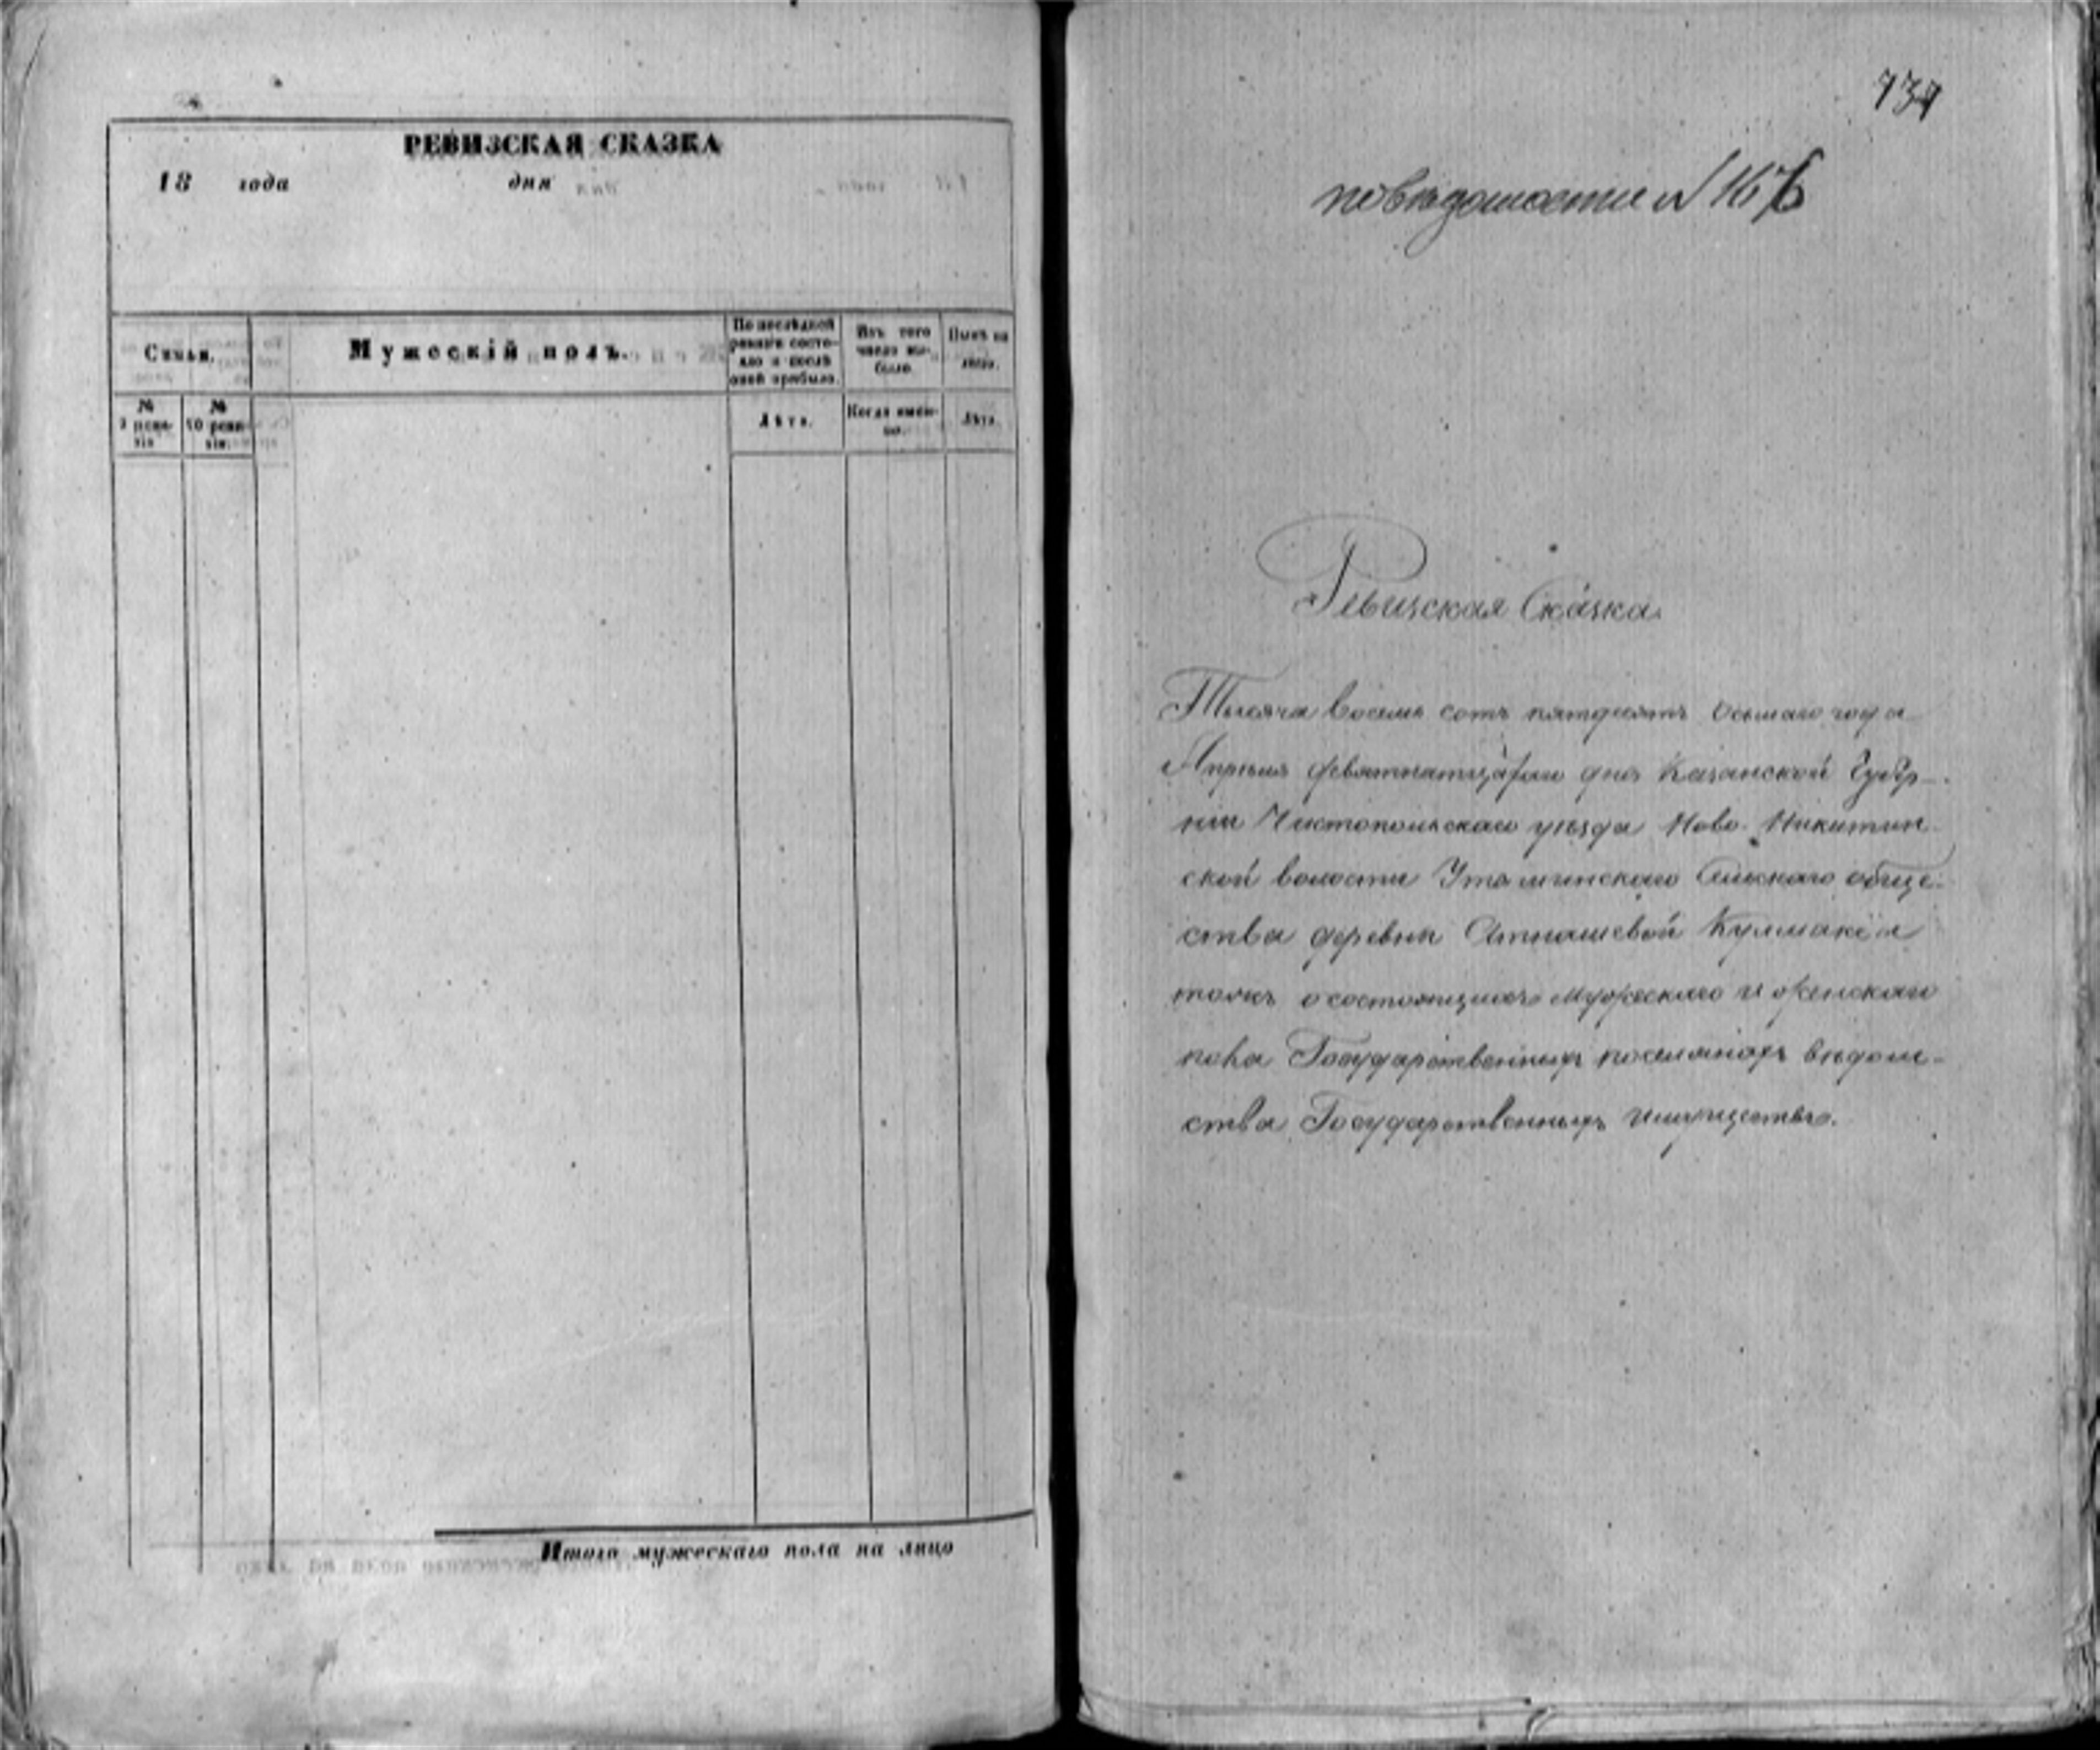 РЕВИЗСКАЯ СКАЗКА
18 года дня
Семьи.
Мужескій полъ.
По послѣдней ревизіи состояло и послѣ оной прибыло.
Изъ того числа выбыло.
Нынѣ на лицо.
№ ревизіи
№ 10 ревизіи.
Лѣта.
Когда именно.
Лѣта.
Итого мужескаго пола на лицо
по вѣдомости № 167
Ревизская Сказка.
Тысяча восемь сотъ пятдесятъ осьмаго года
Апрѣля девятнатцатаго дня Казанской Губер-
ніи Чистопольскаго уѣзда Ново-Никитин
ской волости Сельскаго обще-
ства деревни Атнашевой Кулмакса
тожъ о состоящихъ мужескаго и женскаго
пола Государственныхъ поселянахъ вѣдом-
ства Государственныхъ имуществъ.